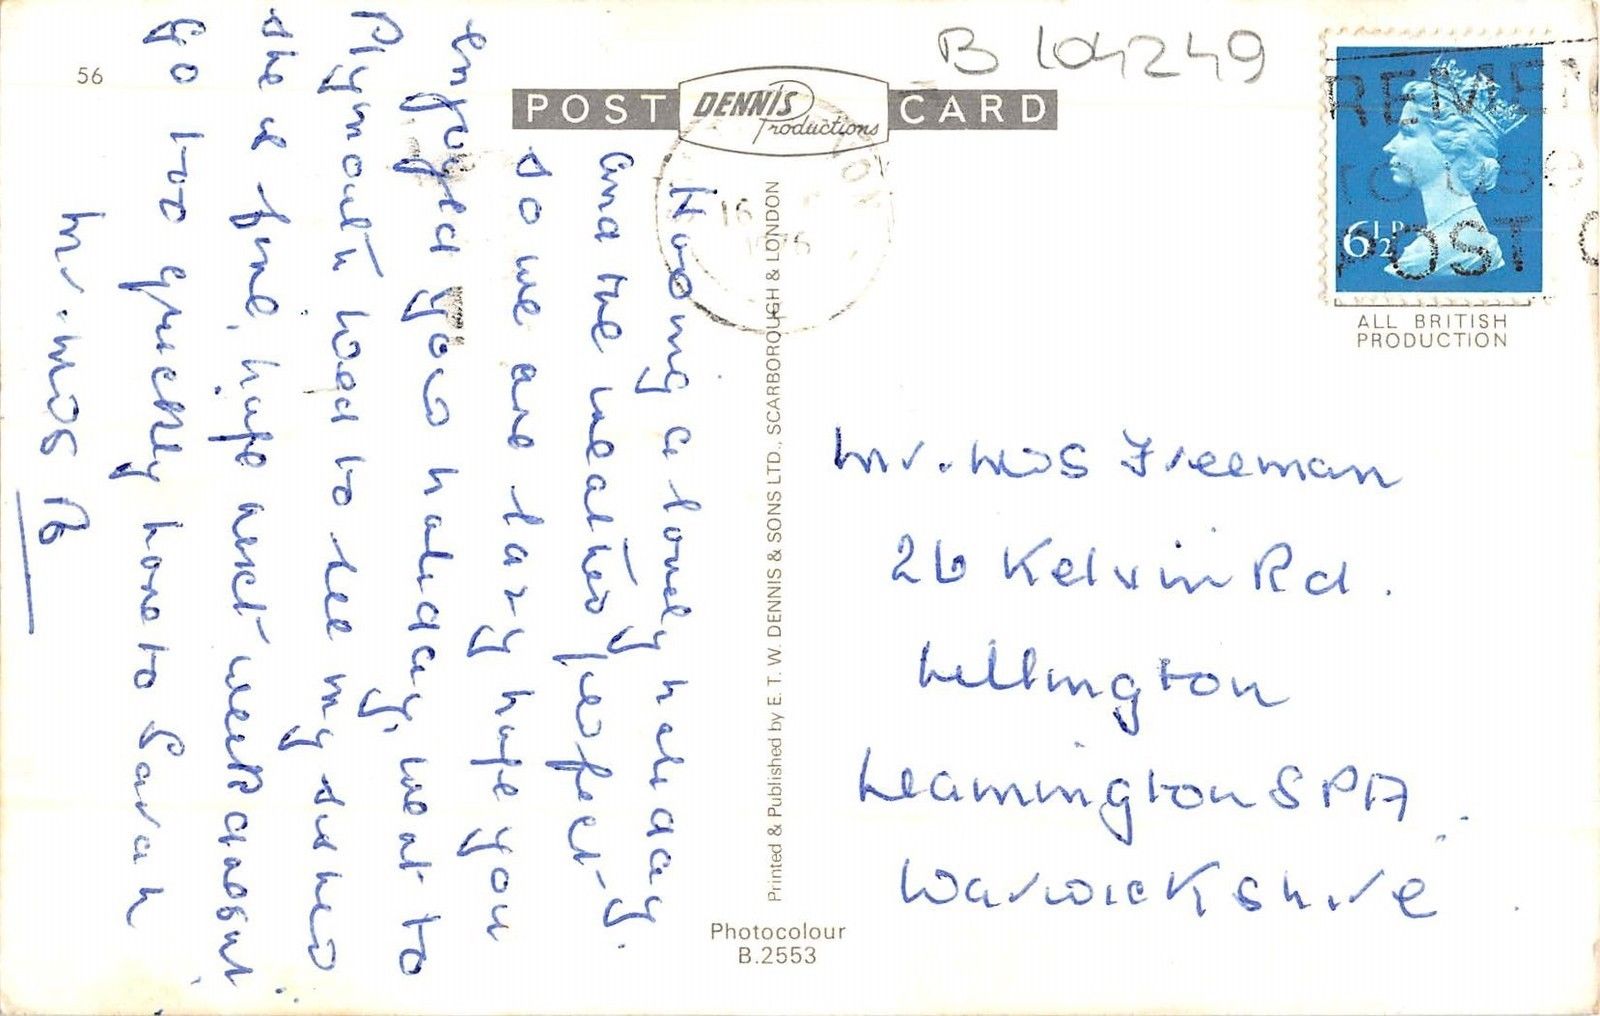 56
B 104249
POST DENNIS Productions CARD
REMEM
TO USE
POST CO
6½P
ALL BRITISH
PRODUCTION
16
1975
Having a lovely holiday
and the weather perfect-
so we are lazy hope you
enjoyed your holiday, went to
Plymouth hoad to see my sister
she is fine, hope next week doesnt
go too quickly love to Sarah
Mr. Mrs B
Printed & Published by E. T. W. DENNIS & SONS LTD., SCARBOROUGH & LONDON
Mr. Mrs Freeman
26 Kelvin Rd.
Lillington
Leamington SPA
Warwickshire
Photocolour
B.2553